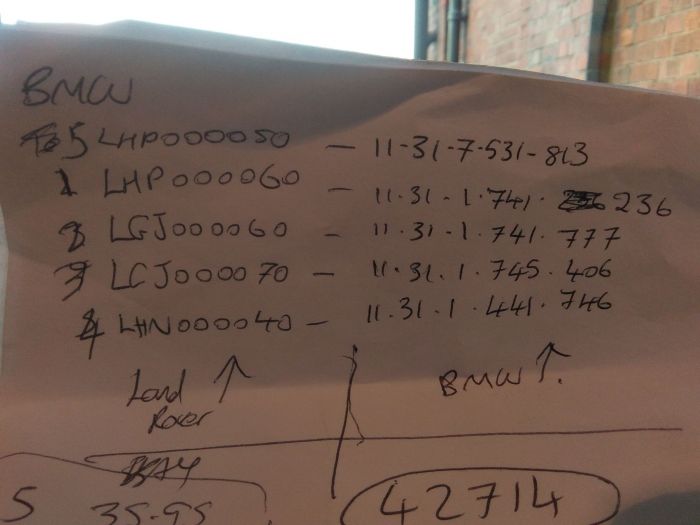 BMW
5 LHP000050 - 11-31-7-531-813
1 LHP000060 - 11.31-1.741. 236
LGJ000060 - 11.31-1.741.777
3 LCJ000070 - 11.31.1.745.406
4 LHN000040 - 11.31.1.441.746
Land Rover ↑
BMW ↑.
5 35-95
42714